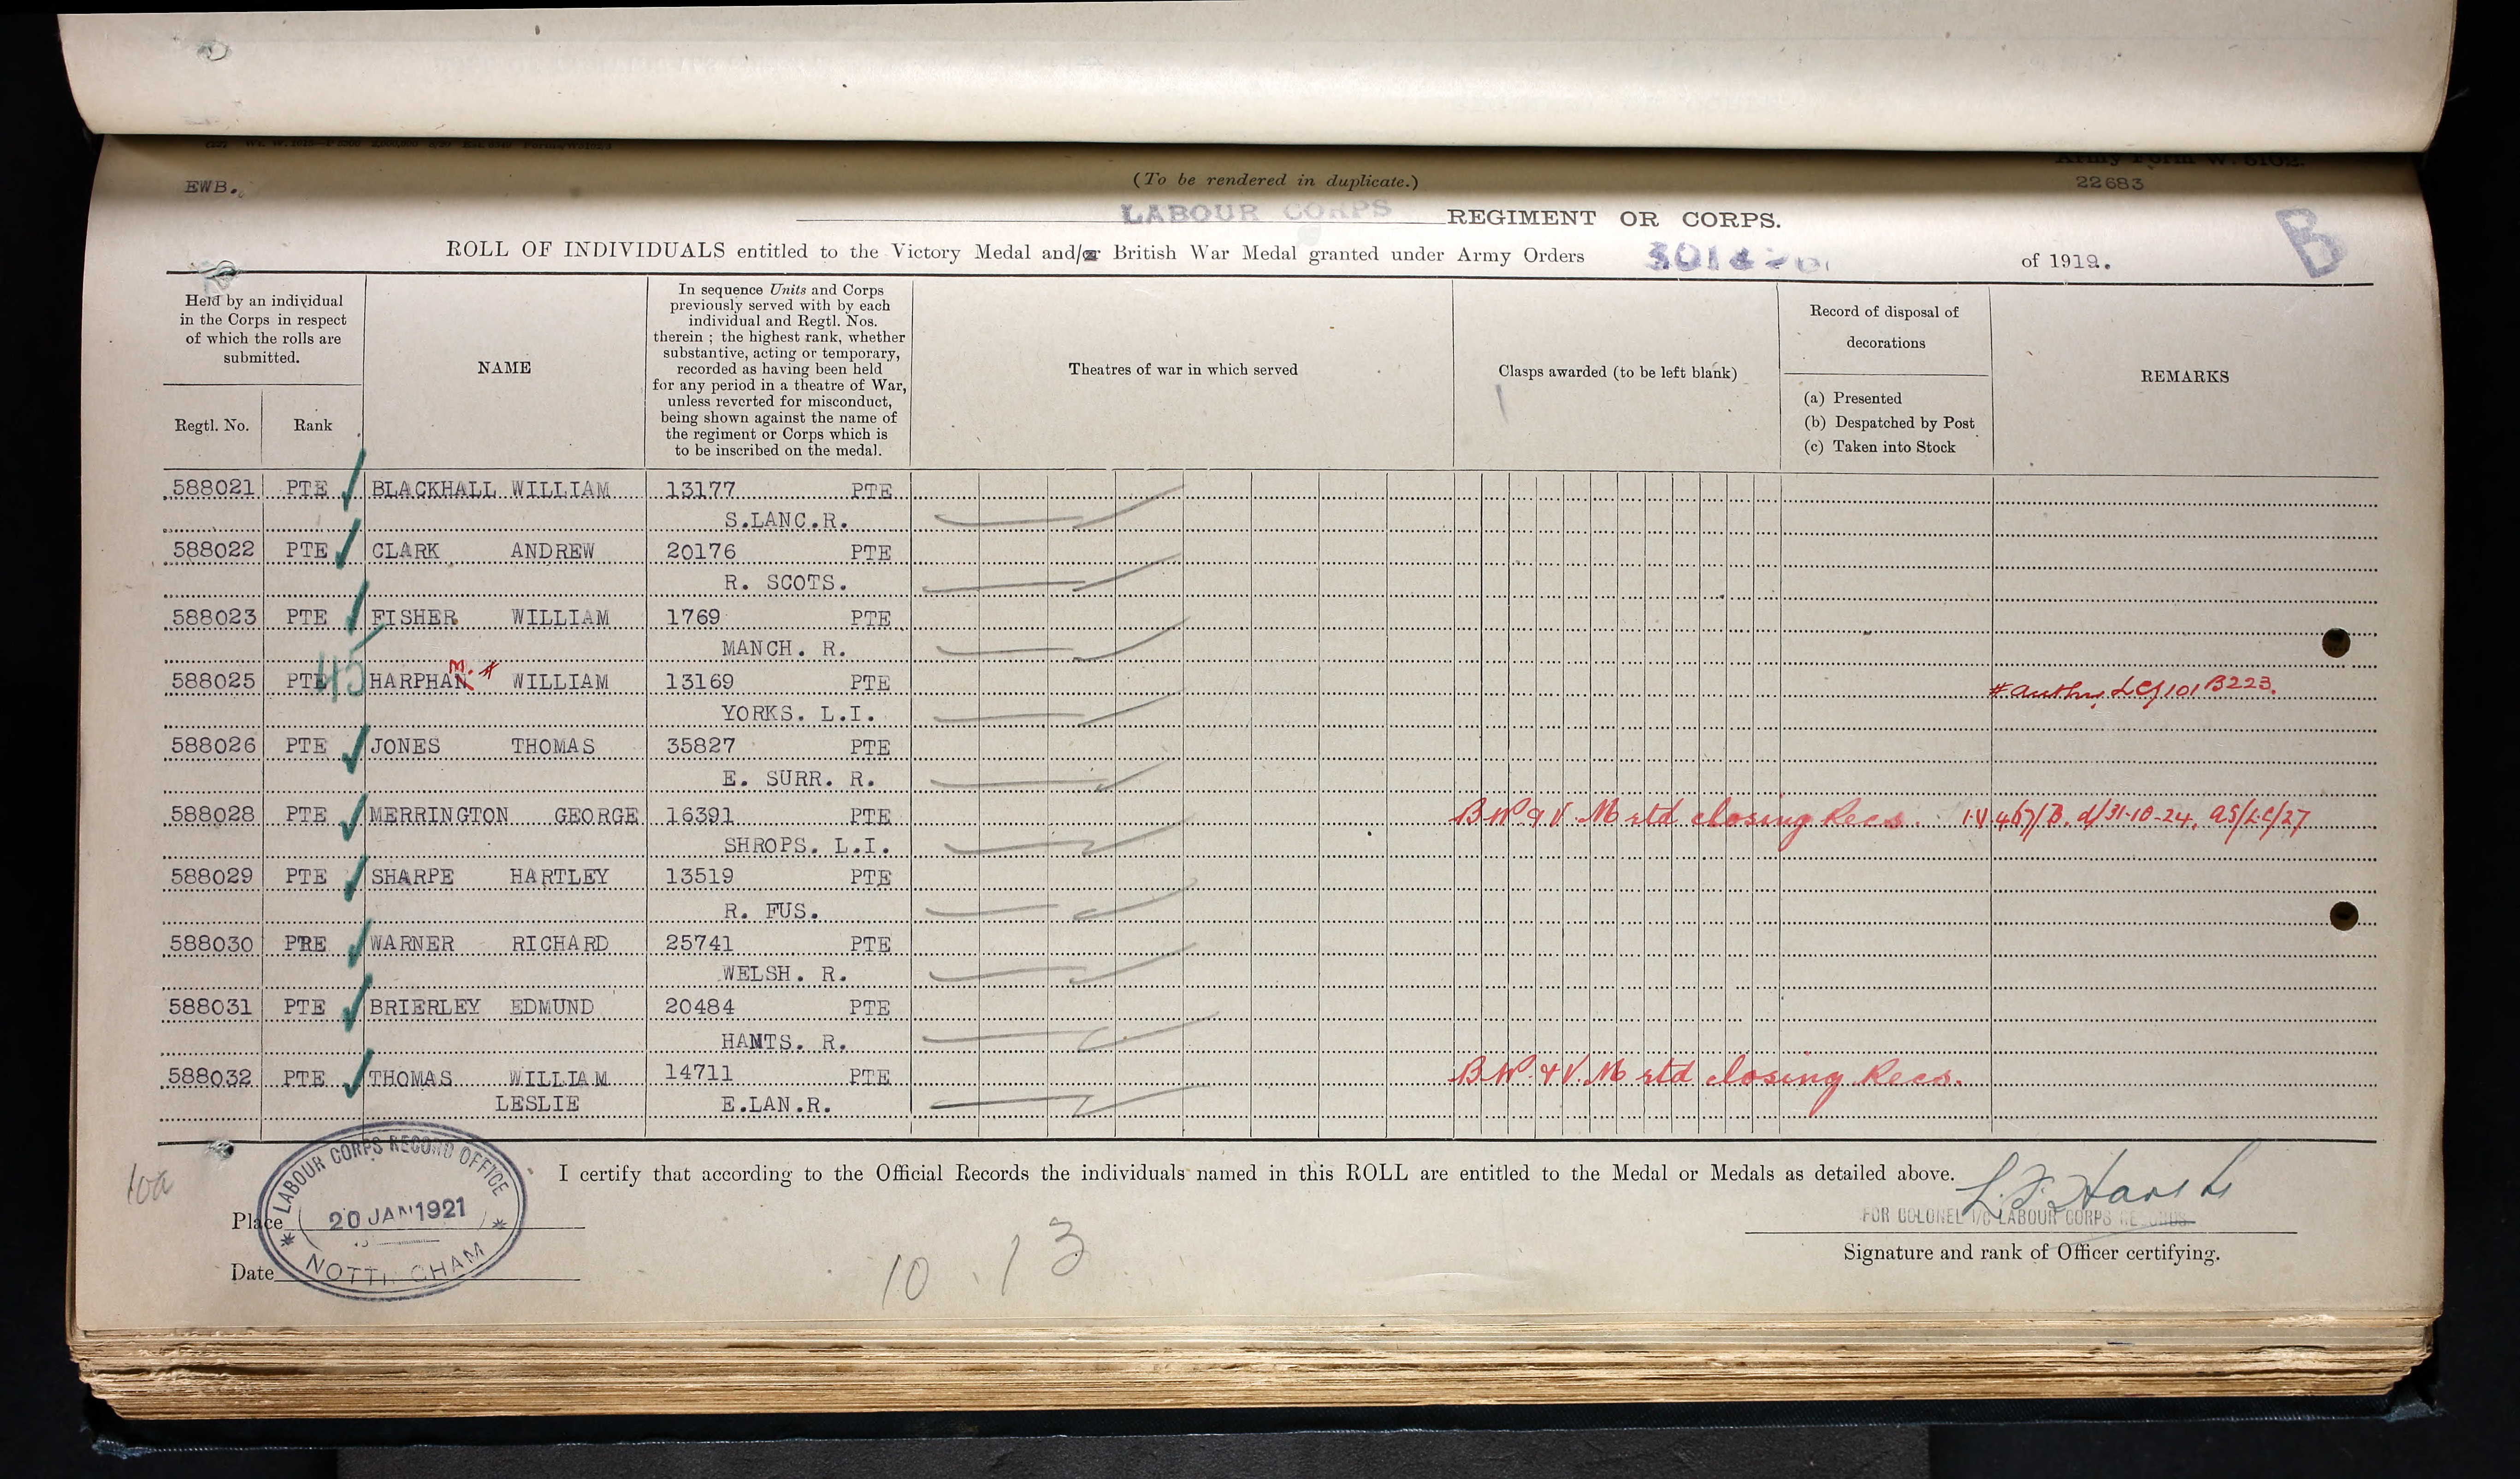 EWB.
(To be rendered in duplicate.)
Army Form W. 5102.
22683
LABOUR CORPS REGIMENT OR CORPS.
B
ROLL OF INDIVIDUALS entitled to the Victory Medal and/or British War Medal granted under Army Orders of 1919.
Held by an individual
in the Corps in respect
of which the rolls are
submitted.
Regtl. No.
Rank
NAME
In sequence Units and Corps
previously served with by each
individual and Regtl. Nos.
therein ; the highest rank, whether
substantive, acting or temporary,
recorded as having been held
for any period in a theatre of War,
unless reverted for misconduct,
being shown against the name of
the regiment or Corps which is
to be inscribed on the medal.
Theatres of war in which served
Clasps awarded (to be left blank)
Record of disposal of
decorations
(a) Presented
(b) Despatched by Post
(c) Taken into Stock
REMARKS
588021 PTE BLACKHALL WILLIAM 13177 PTE
S.LANC.R.
588022 PTE CLARK ANDREW 20176 PTE
R. SCOTS.
588023 PTE FISHER WILLIAM 1769 PTE
MANCH. R.
45
M. #
588025 PTE HARPHAN WILLIAM 13169 PTE # Authy. LC/101 B223.
YORKS. L.I.
588026 PTE JONES THOMAS 35827 PTE
E. SURR. R.
588028 PTE MERRINGTON GEORGE 16391 PTE B.W. & V. M rtd closing Recs. 1.V.467/B. d/31-10-24. AS/LC/27
SHROPS. L.I.
588029 PTE SHARPE HARTLEY 13519 PTE
R. FUS.
588030 PRE WARNER RICHARD 25741 PTE
WELSH. R.
588031 PTE BRIERLEY EDMUND 20484 PTE
HANTS. R.
588032 PTE THOMAS WILLIAM 14711 PTE B.W. & V. M rtd closing Recs.
LESLIE E.LAN.R.
I certify that according to the Official Records the individuals named in this ROLL are entitled to the Medal or Medals as detailed above.
10a
LABOUR CORPS RECORD OFFICE
20 JAN 1921
NOTTINGHAM
Place
Date
10 . 13
FOR COLONEL I/C LABOUR CORPS RECORDS
Signature and rank of Officer certifying.